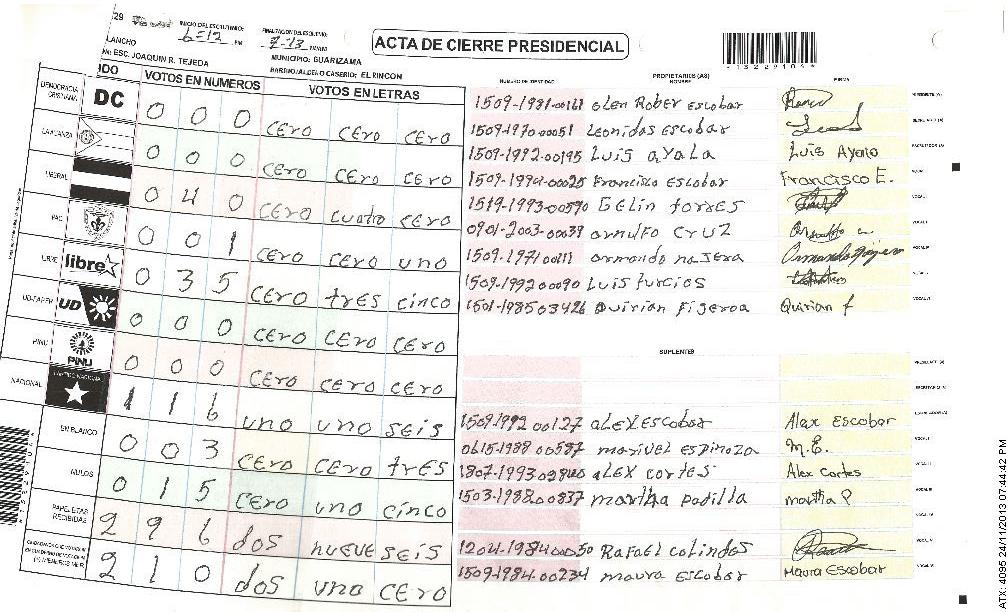 29 INICIO DEL ESCRUTINIO: 6=12 PM FINALIZACION DEL ESCRUTINIO: 7-13
ACTA DE CIERRE PRESIDENCIAL
LANCHO MUNICIPIO: GUARIZAMA
ESC. JOAQUIN R. TEJEDA BARRIO/ALDEA/CASERIO: EL RINCON
13229104
IDO VOTOS EN NUMEROS VOTOS EN LETRAS
DEMOCRACIA CRISTIANA DC 0 0 0 CERO CERO CERO
LA ALIANZA 0 0 0 CERO CERO CERO
LIBERAL 0 4 0 CERO cuatro cero
PAC 0 0 1 CERO CERO uno
LIBRE libre 0 3 5 CERO tres cinco
UD-FAPER UD 0 0 0 CERO CERO CERO
PINU PINU 0 0 0 CERO CERO CERO
NACIONAL PARTIDO NACIONAL 1 1 6 uno uno seis
EN BLANCO 0 0 3 CERO CERO tres
NULOS 0 1 5 CERO uno cinco
PAPELETAS RECIBIDAS 2 9 6 dos nueve seis
2 1 0 dos uno CERO
NUMERO DE IDENTIDAD PROPIETARIOS (AS) NOMBRE FIRMA
1509-1981-00161 olen Rober escobar PRESIDENTE (A)
1509-1970-00051 Leonidas Escobar SECRETARIO (A)
1509-1992-00195 Luis ayala Luis Ayala ESCRUTADOR (A)
1509-1994-00025 Francisco Escobar Francisco E. VOCAL I
1519-1993-00590 Gelin torres VOCAL II
0901-2003-00039 arnulfo CRUZ
1509-1971-00111 armando najera
1509-1992-00090 Luis turcios
1501-1985-03426 Quirian Figeroa Quirian f
SUPLENTES
PRESIDENTE (A)
SECRETARIO (A)
1509-1992 00127 alex Escobar Alex Escobar ESCRUTADOR (A)
0615-1988 00587 marivel espinoza M.E. VOCAL I
1807-1993-02840 alex cortes Alex Cortes
1503-1988-00837 martha padilla martha P
1204-1984-00050 Rafael colindes
1509-1984-00234 maura escobar Maura Escobar
ATX: 4095 24/11/2013 07:44:42 PM